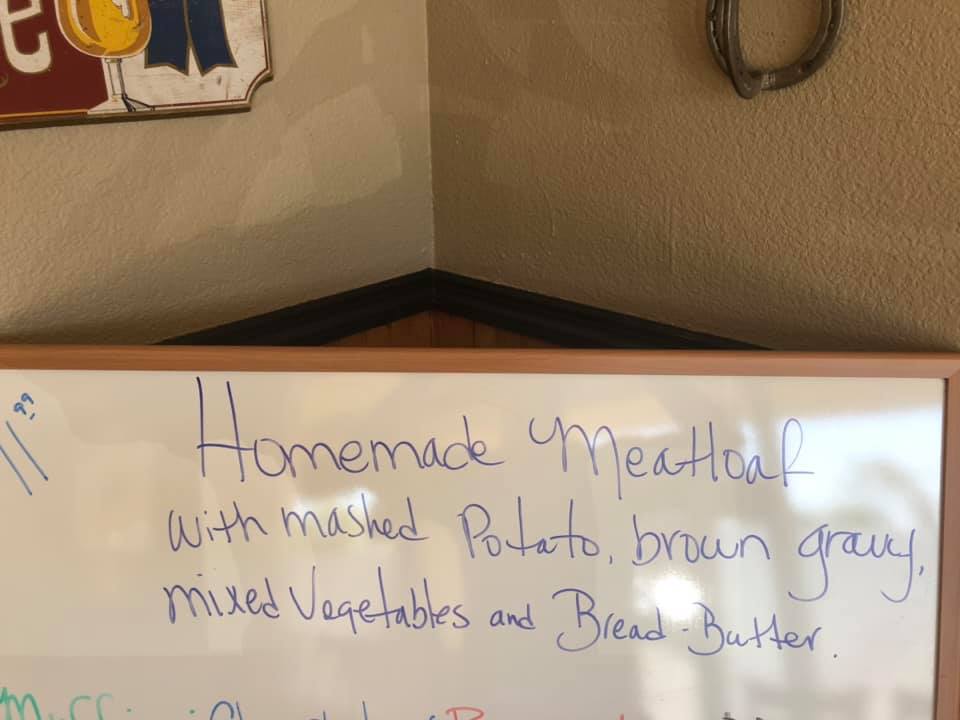 e
11.99
Homemade Meatloaf
with mashed Potato, brown gravy,
mixed Vegetables and Bread-Butter.